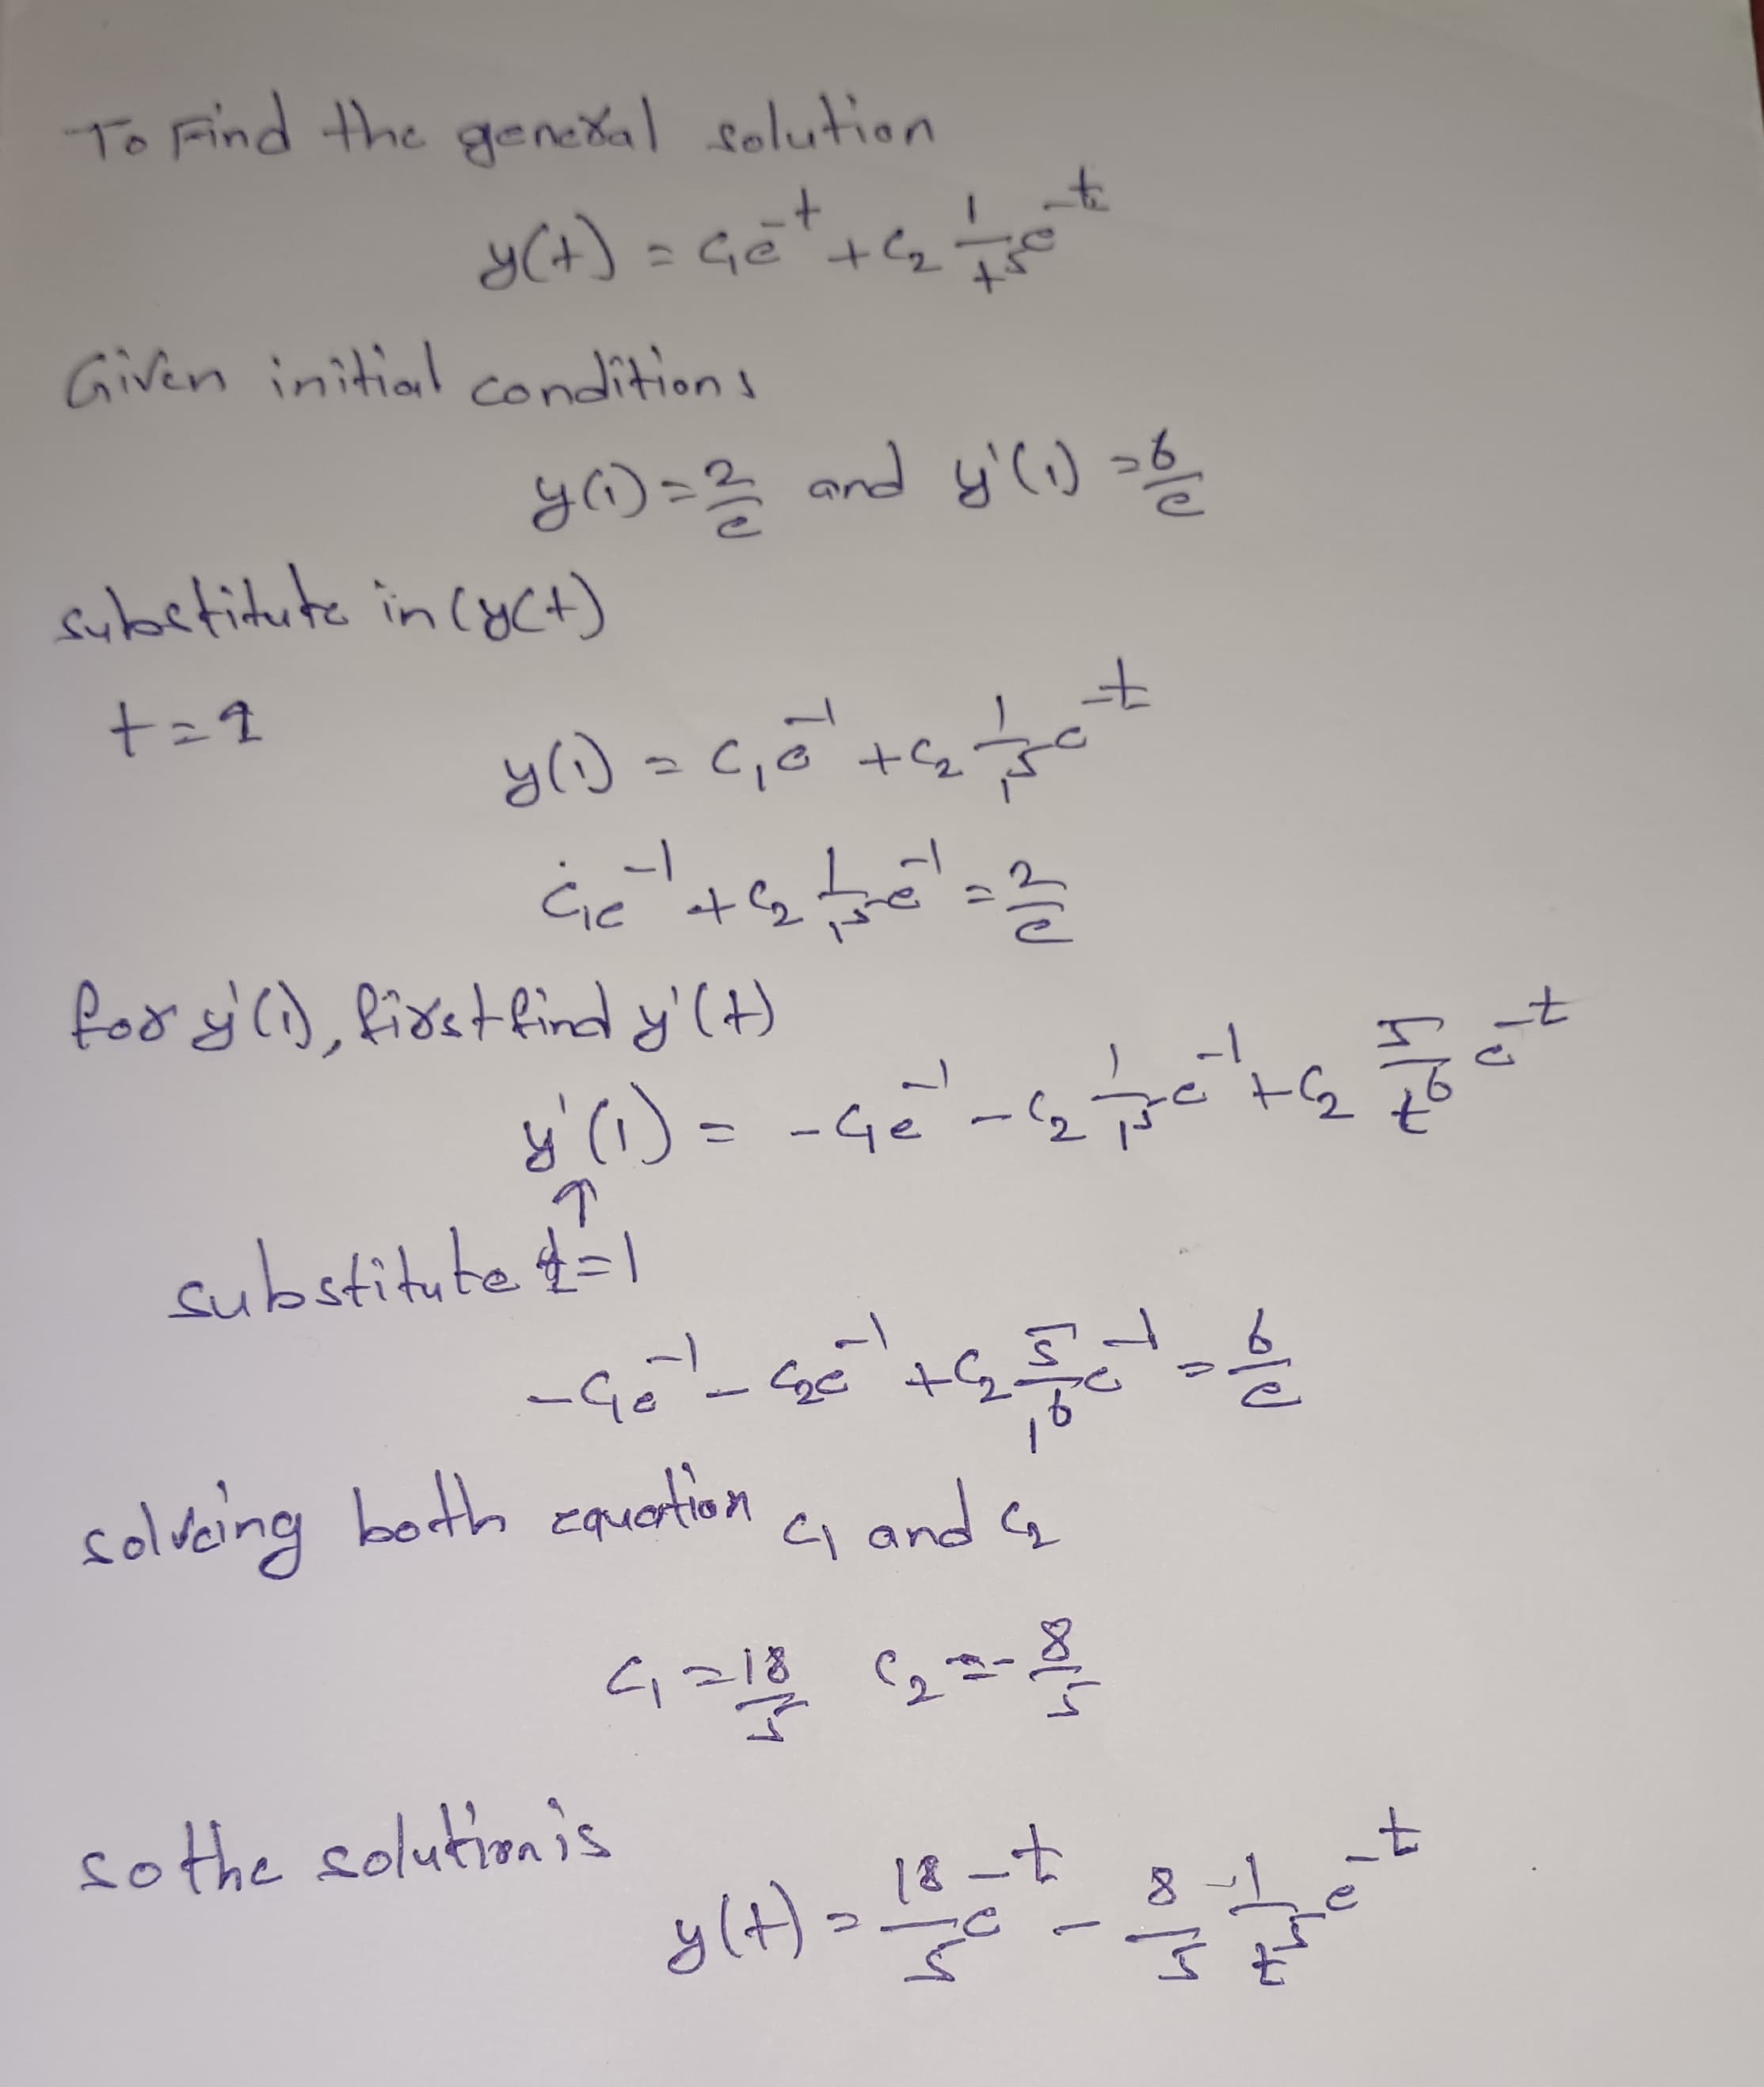 To Find the general solution
y(t) = c₁e⁻ᵗ + c₂ 1/t⁵ e⁻ᵗ
Given initial conditions
y(1) = 2/e and y'(1) = 6/e
substitute in (y(t)
t = 1
y(1) = c₁e⁻¹ + c₂ 1/1⁵ e⁻ᵗ
c₁e⁻¹ + c₂ 1/1⁵ e⁻¹ = 2/e
for y'(1), first find y'(t)
y'(1) = -c₁e⁻¹ - c₂ 1/1⁵ e⁻¹ + c₂ 5/t⁶ e⁻ᵗ
↑
substitute t=1
-c₁e⁻¹ - c₂e⁻¹ + c₂ 5/1⁶ e⁻¹ = 6/e
solveing both equation c₁ and c₂
c₁ = 18/5 c₂ = -8/5
so the solution is
y(t) = 18/5 e⁻ᵗ - 8/5 -1/t⁵ e⁻ᵗ